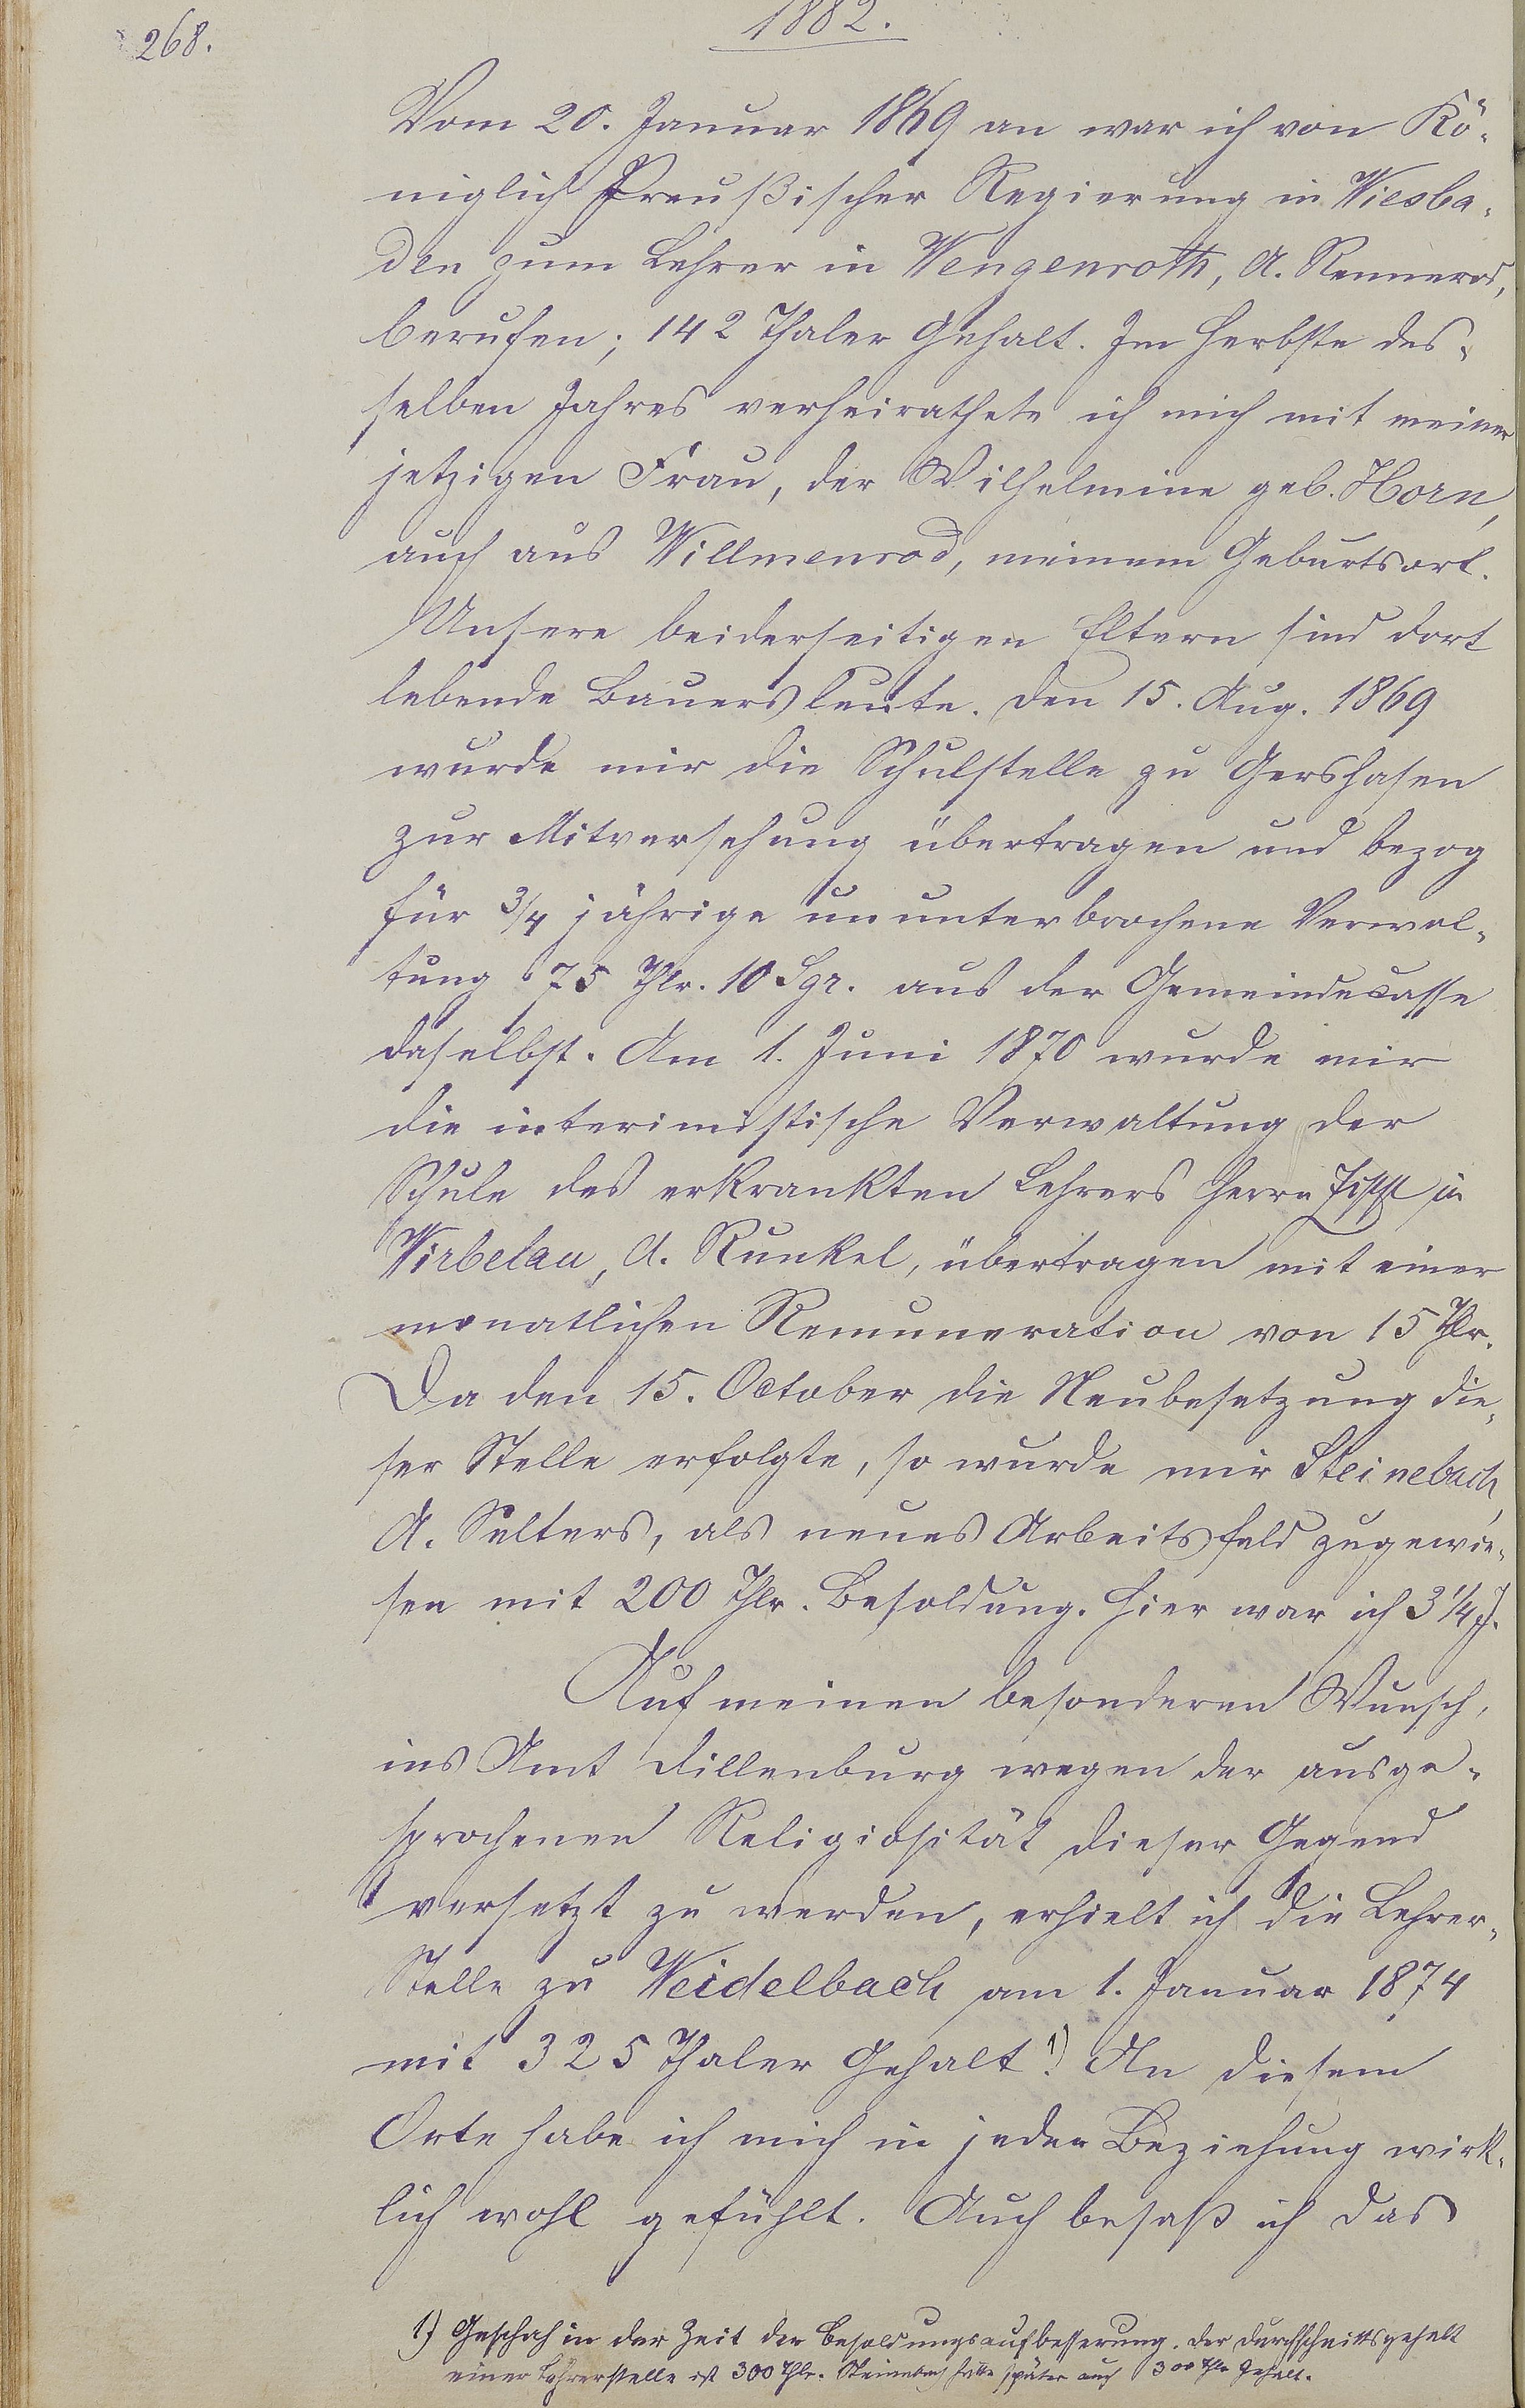 268.
1882.
Vom 20. Januar 1869 an war ich von Kö-
niglich Preußischer Regierung in Wiesba-
den zum Lehrer in Wengenroth, A. Rennerod,
berufen; 142 Thaler Gehalt. Im Herbste des-
selben Jahres verheirathete ich mich mit meiner
jetzigen Frau, der Wilhelmine geb. Horn,
auch aus Willmenrod, meinem Geburtsort.
Unsere beiderseitigen Eltern sind dort
lebende Bauersleute. Den 15. Aug. 1869
wurde mir die Schulstelle zu Gershasen
zur Mitversehung übertragen und bezog
für 3/4 jährige ununterbrochene Verwal-
tung 75 Thlr. 10 Sgr. aus der Gemeindecasse
daselbst. Am 1. Juni 1870 wurde mir
die interimistische Verwaltung der
Schule des erkrankten Lehrers Herrn in
Wirbelau, A. Runkel, übertragen mit einer
monatlichen Remuneration von 15 Thlr.
Da den 15. October die Neubesetzung die-
ser Stelle erfolgte, so wurde mir Steinebach,
A. Selters, als neues Arbeitsfeld zugewie-
sen mit 200 Thlr. Besoldung. Hier war ich 3 1/4 J.
Auf meinen besonderen Wunsch,
ins Amt Dillenburg wegen der ausge-
sprochenen Religiosität dieser Gegend
versetzt zu werden, erhielt ich die Lehrer-
Stelle zu Weidelbach am 1. Januar 1874
mit 325 Thaler Gehalt.1) An diesem
Orte habe ich mich in jeder Beziehung wirk-
lich wohl gefühlt. Auch besaß ich das
1) Geschah in der Zeit der Besoldungsaufbesserung. Der Durchschnittsgehalt
einer Lehrerstelle ist 300 Thlr. Steinebach hatte später auch 300 Thlr Gehalt.